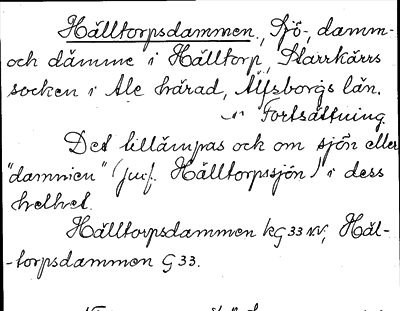 Hälltorpsdammen, Sjö-, damm-
och dämme i Hälltorp, Starrkärrs
socken i Ale härad, Älfsborgs län.
Fortsättning.
Det tillämpas och om sjön eller
"dammen" (jmf. Hälltorpssjön) i dess
helhet.
Hälltorpsdammen kG 33 NV, Häl-
-torpsdammen G 33.